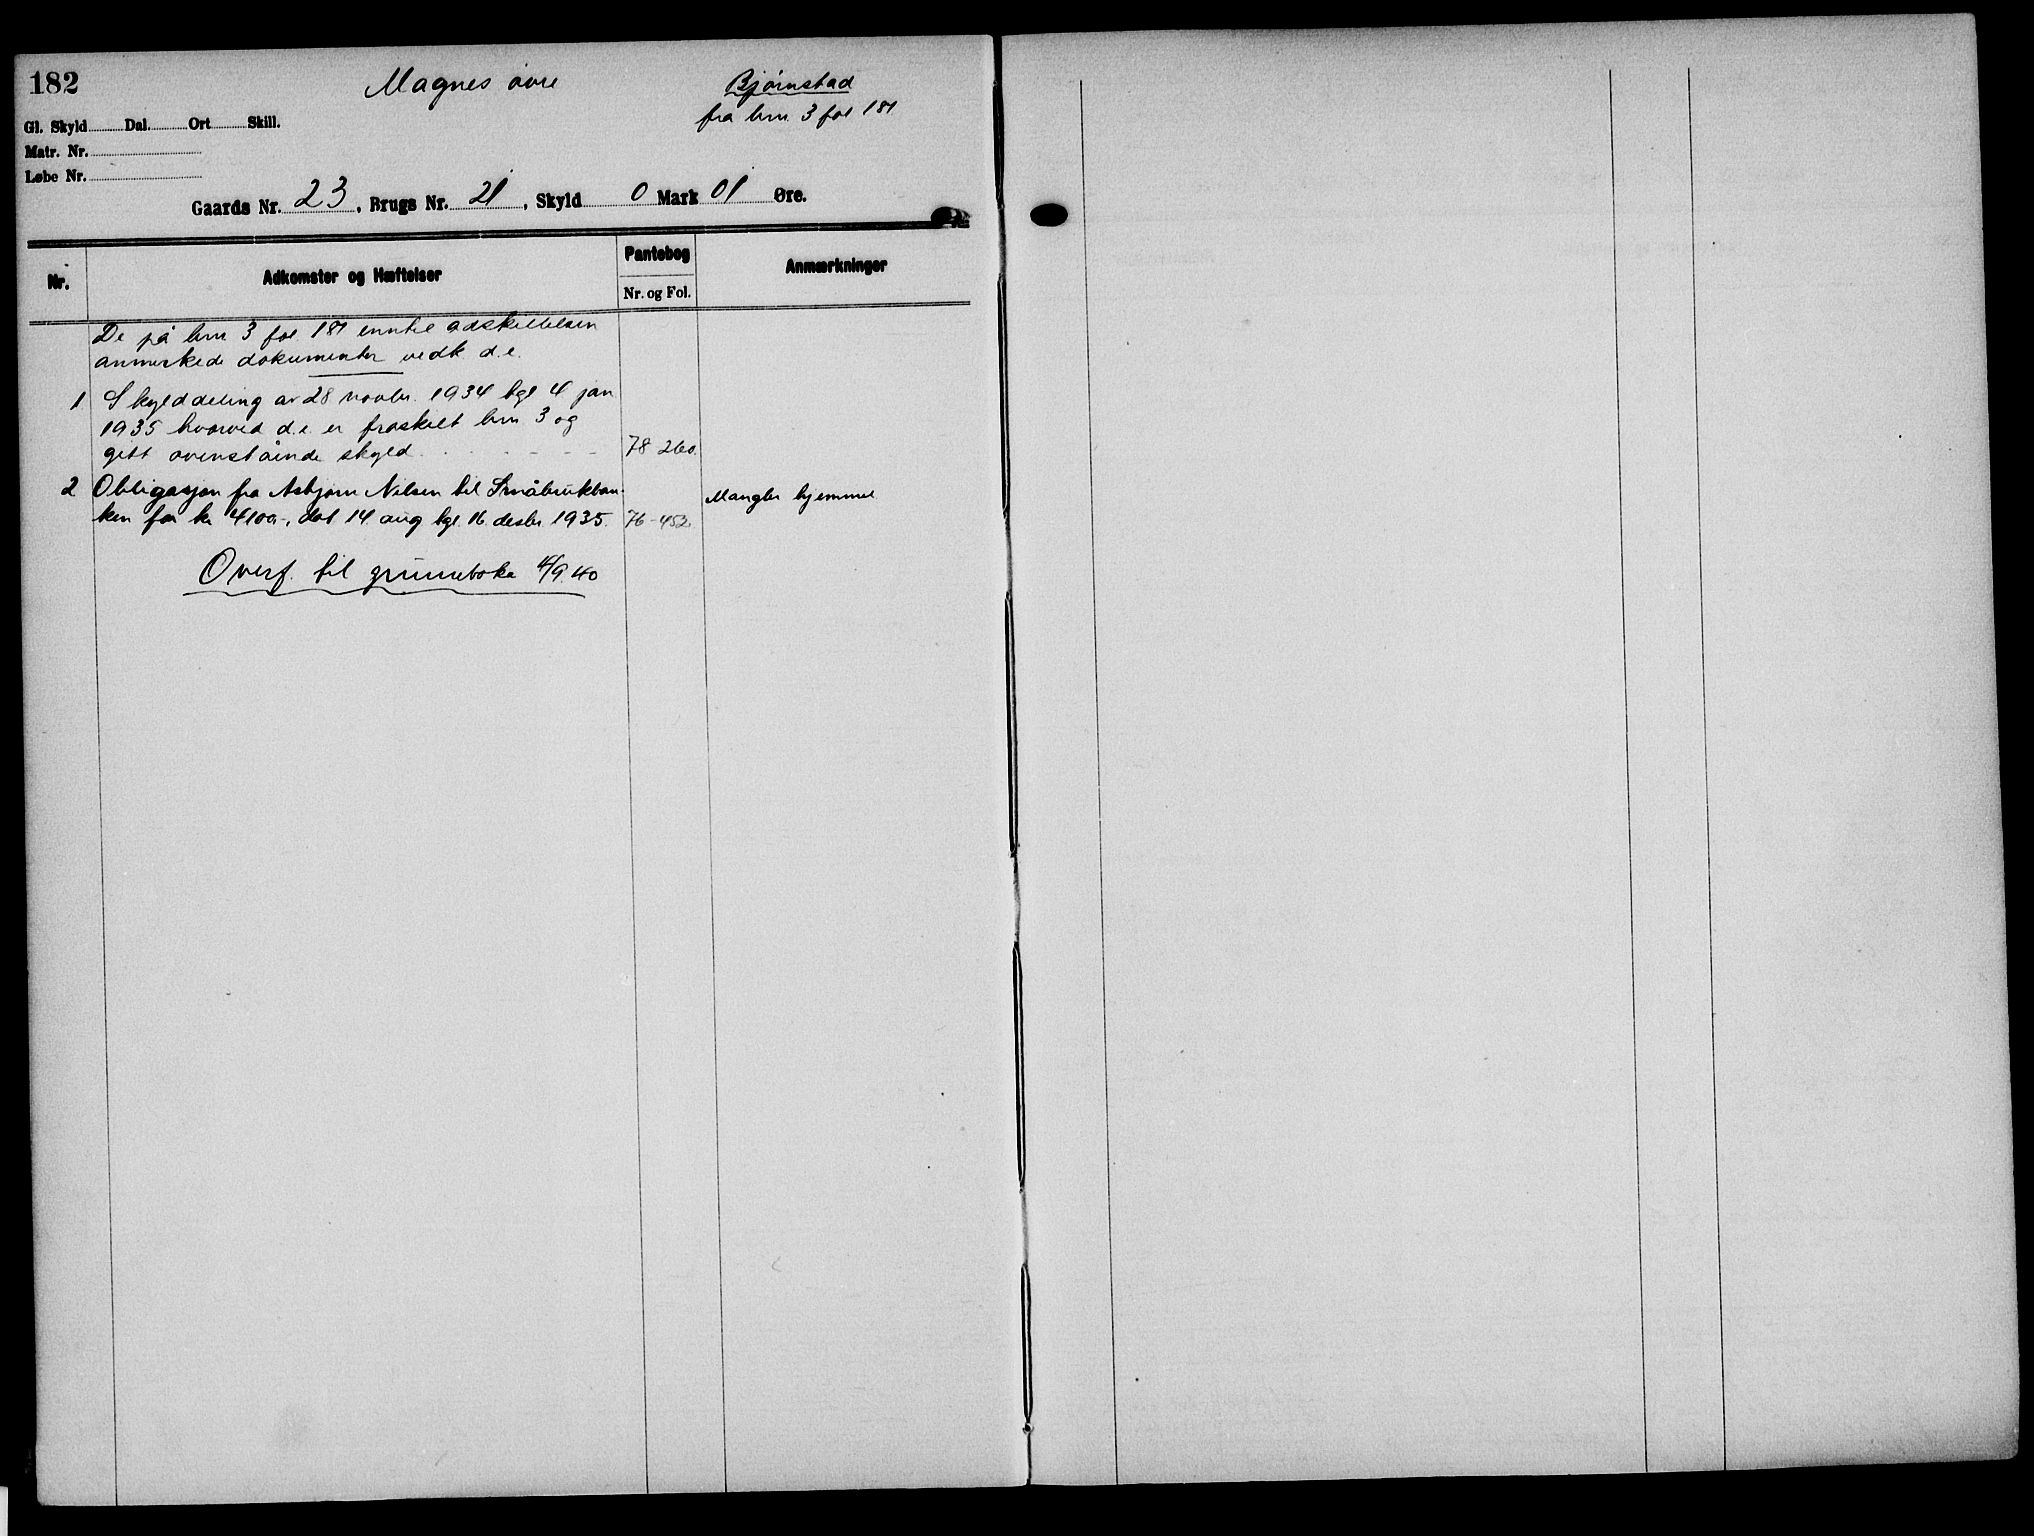 182
Magnes øvre
Bjørnstad
fra brn. 3 fol 181
Gl. Skyld Dal. Ort Skill.
Matr. Nr.
Løbe Nr.
Gaards Nr. 23, Brugs Nr. 21, Skyld 0 Mark 01 Øre.
Nr. Adkomster og Hæftelser Pantebog Anmærkninger
Nr. og Fol.
De på brn 3 fol 181 inntil adskillelsen
anmerkede dokumenter vedk. d.e.
1 Skylddeling av 28 novbr. 1934 tgl 4 jan
1935 hvorved d.e. er fraskilt brn 3 og
gitt ovenstående skyld 78 260.
2 Obligasjon fra Asbjørn Nilsen til Småbrukban-
ken for kr 4100-, dat 14 aug tgl. 16 desbr 1935. 76-452.
Mangler hjemmel
Overf. til grunneboka 4/9.40